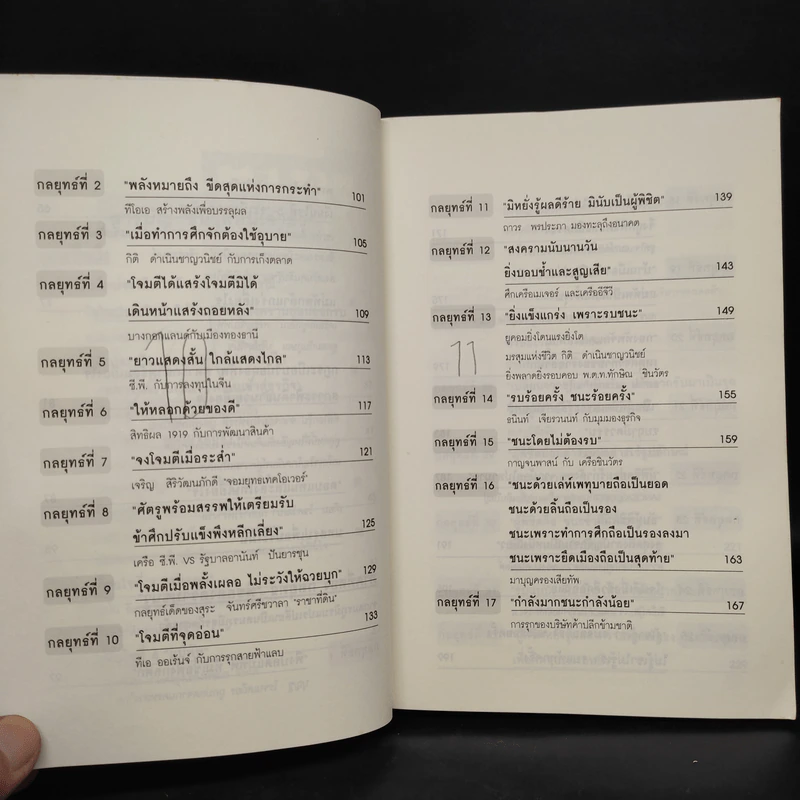 กลยุทธ์ที่ 2 "พลังหมายถึง ขีดสุดแห่งการกระทำ" 101
ทีโอเอ สร้างพลังเพื่อบรรลุผล
กลยุทธ์ที่ 3 "เมื่อทำการศึกจักต้องใช้อุบาย" 105
กิติ ดำเนินชาญวนิชย์ กับการเก็งตลาด
กลยุทธ์ที่ 4 "โจมตีได้แสร้งโจมตีมิได้
เดินหน้าแสร้งถอยหลัง" 109
บางกอกแลนด์กับเมืองทองธานี
กลยุทธ์ที่ 5 "ยาวแสดงสั้น ใกล้แสดงไกล" 113
ซี.พี. กับการลงทุนในจีน
กลยุทธ์ที่ 6 "ให้หลอกด้วยของดี" 117
สิทธิผล 1919 กับการพัฒนาสินค้า
กลยุทธ์ที่ 7 "จงโจมตีเมื่อระส่ำ" 121
เจริญ สิริวัฒนภักดี "จอมยุทธเทคโอเวอร์"
กลยุทธ์ที่ 8 "ศัตรูพร้อมสรรพให้เตรียมรับ
ข้าศึกปรับแข็งพึงหลีกเลี่ยง" 125
เครือ ซี.พี. VS รัฐบาลอานันท์ ปันยารชุน
กลยุทธ์ที่ 9 "โจมตีเมื่อพลั้งเผลอ ไม่ระวังให้ฉวยบุก" 129
กลยุทธ์เด็ดของสุระ จันทร์ศรีชวาลา "ราชาที่ดิน"
กลยุทธ์ที่ 10 "โจมตีที่จุดอ่อน" 133
ทีเอ ออเร้นจ์ กับการรุกสายฟ้าแลบ
10
กลยุทธ์ที่ 11 "มิหยั่งรู้ผลดีร้าย มินับเป็นผู้พิชิต" 139
ถาวร พรประภา มองทะลุถึงอนาคต
กลยุทธ์ที่ 12 "สงครามนับนานวัน
ยิ่งบอบช้ำและสูญเสีย" 143
ศึกเครือเมเจอร์ และเครืออีจีวี
กลยุทธ์ที่ 13 "ยิ่งแข็งแกร่ง เพราะรบชนะ" 149
ยูคอมยิ่งโดนแรงยิ่งโต
11
มรสุมแห่งชีวิต กิติ ดำเนินชาญวนิชย์
ยิ่งพลาดยิ่งรอบคอบ พ.ต.ท.ทักษิณ ชินวัตร
กลยุทธ์ที่ 14 "รบร้อยครั้ง ชนะร้อยครั้ง" 155
ธนินท์ เจียรวนนท์ กับมุมมองธุรกิจ
กลยุทธ์ที่ 15 "ชนะโดยไม่ต้องรบ" 159
กาญจนพาสน์ กับ เครือชินวัตร
กลยุทธ์ที่ 16 "ชนะด้วยเล่ห์เพทุบายถือเป็นยอด
ชนะด้วยลิ้นถือเป็นรอง
ชนะเพราะทำการศึกถือเป็นรองลงมา
ชนะเพราะยึดเมืองถือเป็นสุดท้าย" 163
มาบุญครองเสียทัพ
กลยุทธ์ที่ 17 "กำลังมากชนะกำลังน้อย" 167
การรุกของบริษัทค้าปลีกข้ามชาติ